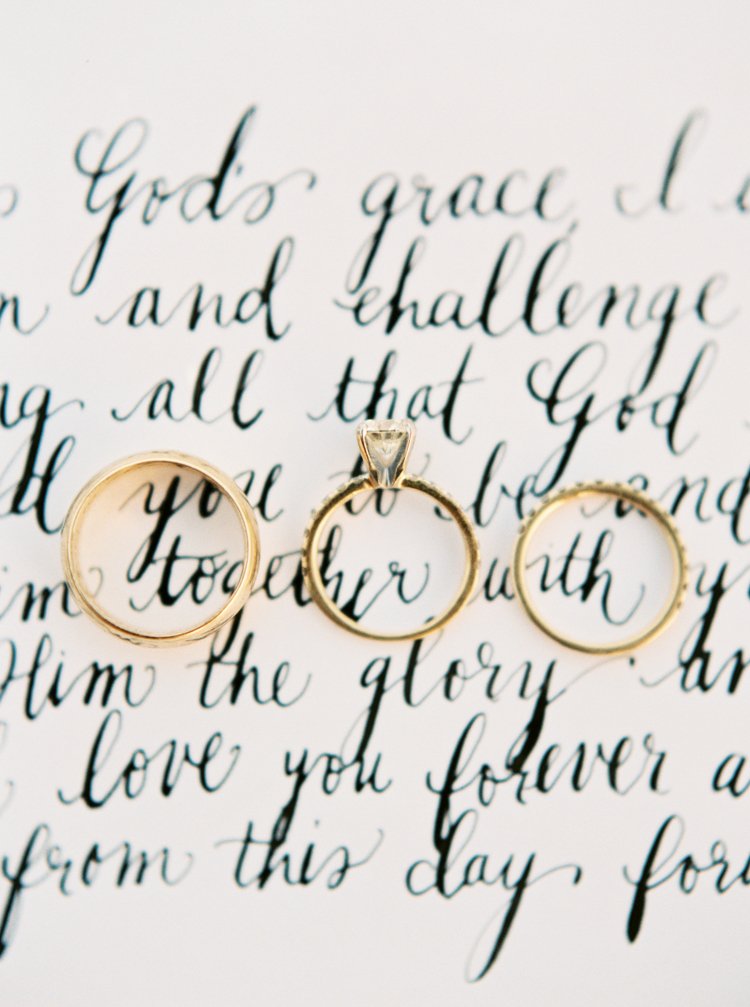 God's grace, I
and challenge
all that God
you to be and
together with
Him the glory
love you forever
from this day